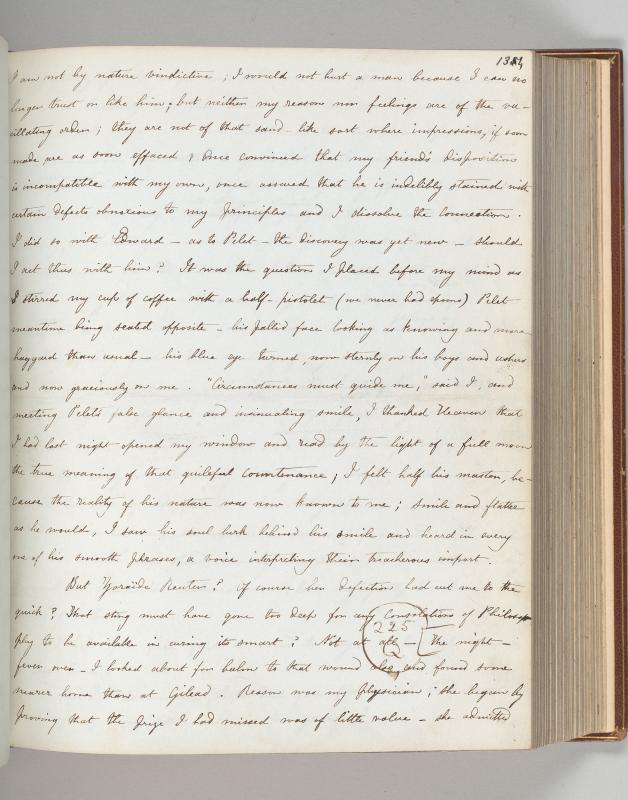 134
I am not by nature vindictive ; I would not hurt a man because I can no
longer trust or like him ; but neither my reason nor feelings are of the va-
cillating order ; they are not of that sand-like sort where impressions, if soon
made are as soon effaced & Once convinced that my friend's disposition
is incompatible with my own, once assured that he is indelibly stained with
certain defects obnoxious to my Principles and I dissolve the connection .
I did so with Edward — as to Pelet — the discovery was yet new — should
I act thus with him ? It was the question I placed before my mind as
I stirred my cup of coffee with a half-pistolet (we never had spoons) Pelet
meantime being seated opposite — his pallid face looking as knowing and more
haggard than usual — his blue eye turned, now sternly on his boys and ushers
and now graciously on me . "Circumstances must guide me," said I, and
meeting Pelet's false glance and insinuating smile, I thanked Heaven that
I had last night opened my window and read by the light of a full moon
the true meaning of that guileful countenance ; I felt half his master, be-
cause the reality of his nature was now known to me ; smile and flatter
as he would, I saw his soul lurk behind his smile and heard in every
one of his smooth phrases, a voice interpreting their treacherous import .
But Zoraïde Reuter ? Of course her defection had cut me to the
quick ? That sting must have gone too deep for any Consolations of Philoso-
phy to be available in curing its smart ? Not at all — [ the night —
225
Q
fever over — I looked about for balm to that wound also, and found some
nearer home than at Gilead . Reason was my Physician ; she began by
proving that the Prize I had missed was of little value — she admitted